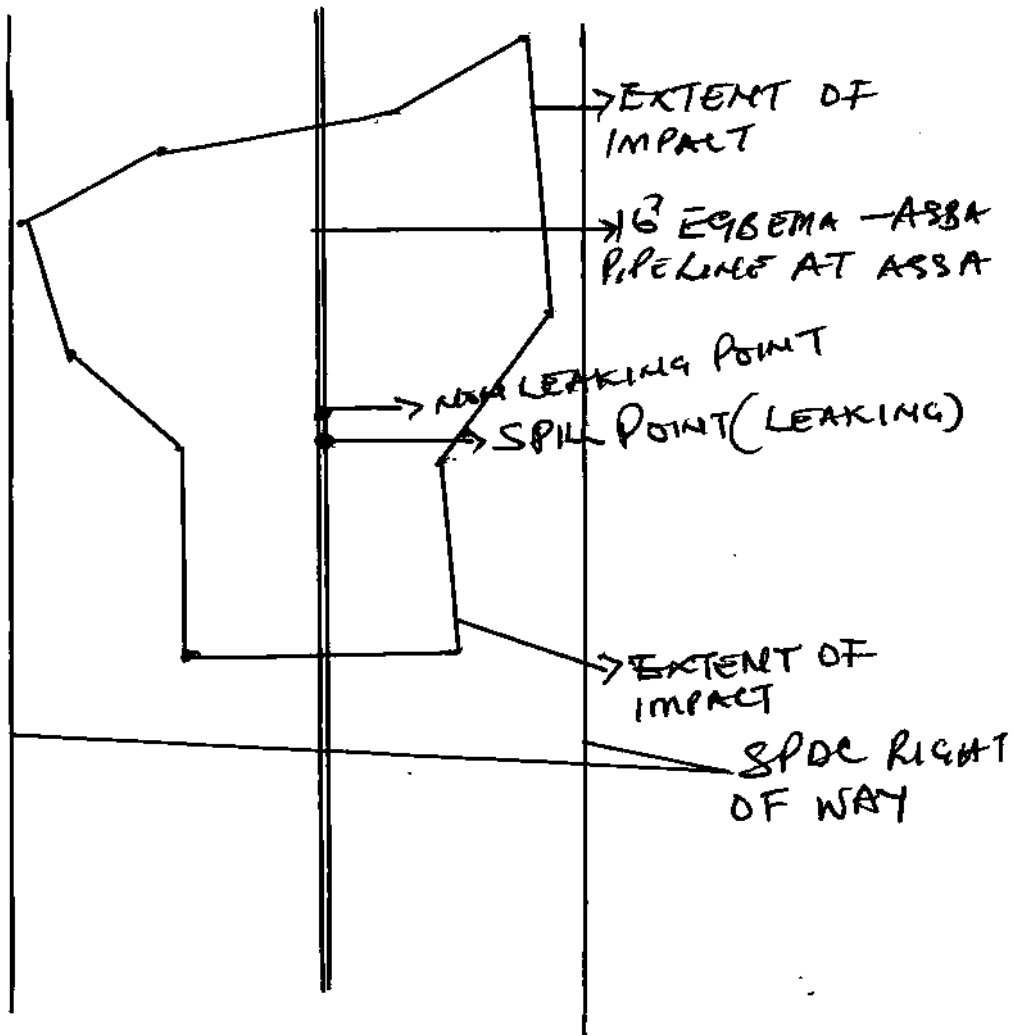 EXTENT OF
IMPACT
16" EGBEMA - ASSA
PIPELINE AT ASSA
NON LEAKING POINT
SPILL POINT (LEAKING)
EXTENT OF
IMPACT
SPDC RIGHT
OF WAY